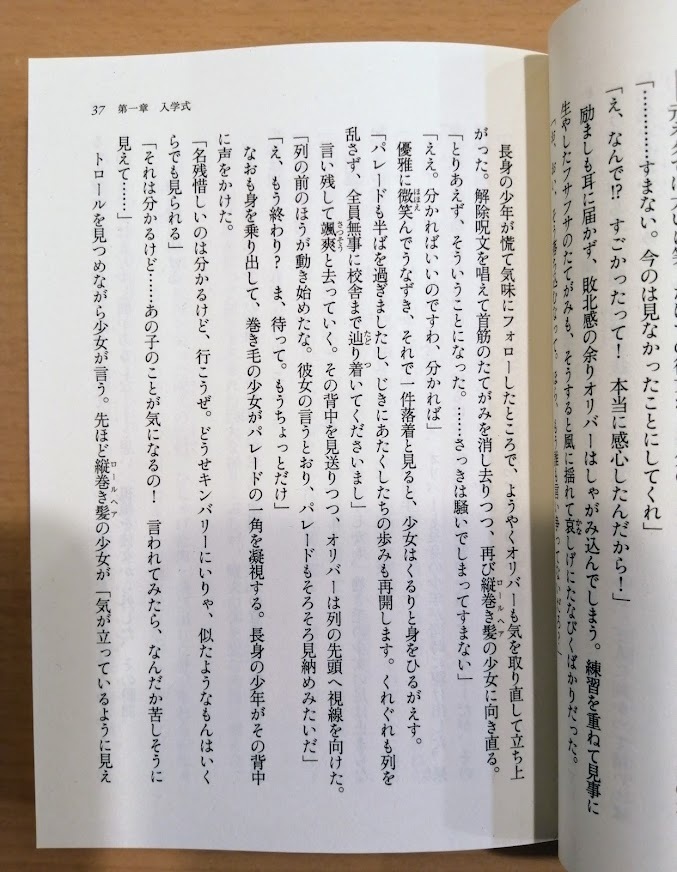 「…………すまない。今のは見なかったことにしてくれ」
「え、なんで!? すごかったって! 本当に感心したんだから!」
励ましも耳に届かず、敗北感の余りオリバーはしゃがみ込んでしまう。練習を重ねて見事に
生やしたフサフサのたてがみも、そうすると風に揺れて哀しげにたなびくばかりだった。
37 第一章 入学式
長身の少年が慌て気味にフォローしたところで、ようやくオリバーも気を取り直して立ち上
がった。解除呪文を唱えて首筋のたてがみを消し去りつつ、再び縦巻き髪の少女に向き直る。
「とりあえず、そういうことになった。……さっきは騒いでしまってすまない」
「ええ。分かればいいのですわ、分かれば」
優雅に微笑んでうなずき、それで一件落着と見ると、少女はくるりと身をひるがえす。
「パレードも半ばを過ぎましたし、じきにあたくしたちの歩みも再開します。くれぐれも列を
乱さず、全員無事に校舎まで辿り着いてくださいまし」
言い残して颯爽と去っていく。その背中を見送りつつ、オリバーは列の先頭へ視線を向けた。
「列の前のほうが動き始めたな。彼女の言うとおり、パレードもそろそろ見納めみたいだ」
「え、もう終わり? ま、待って。もうちょっとだけ」
なおも身を乗り出して、巻き毛の少女がパレードの一角を凝視する。長身の少年がその背中
に声をかけた。
「名残惜しいのは分かるけど、行こうぜ。どうせキンバリーにいりゃ、似たようなもんはいく
らでも見られる」
「それは分かるけど……あの子のことが気になるの! 言われてみたら、なんだか苦しそうに
見えて……」
トロールを見つめながら少女が言う。先ほど縦巻き髪の少女が「気が立っているように見え